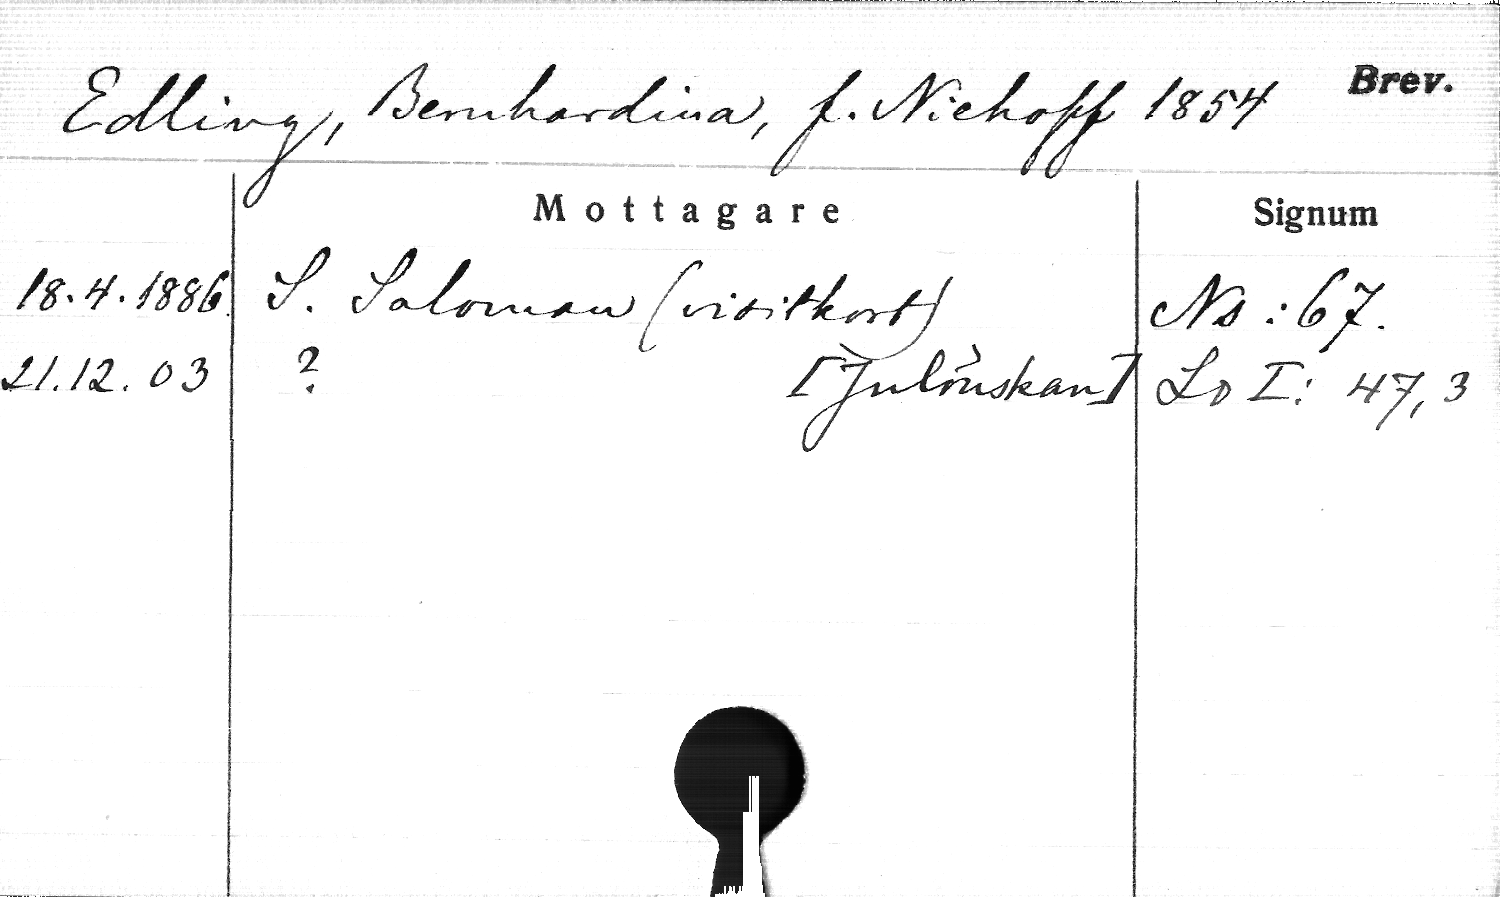 Edling, Bernhardina, f. Niehoff 1854 Brev.
Mottagare Signum
18.4.1886 S. Saloman (visitkort) Ns : 67.
21.12.03 ? [Julönskan] Lo I: 47,3